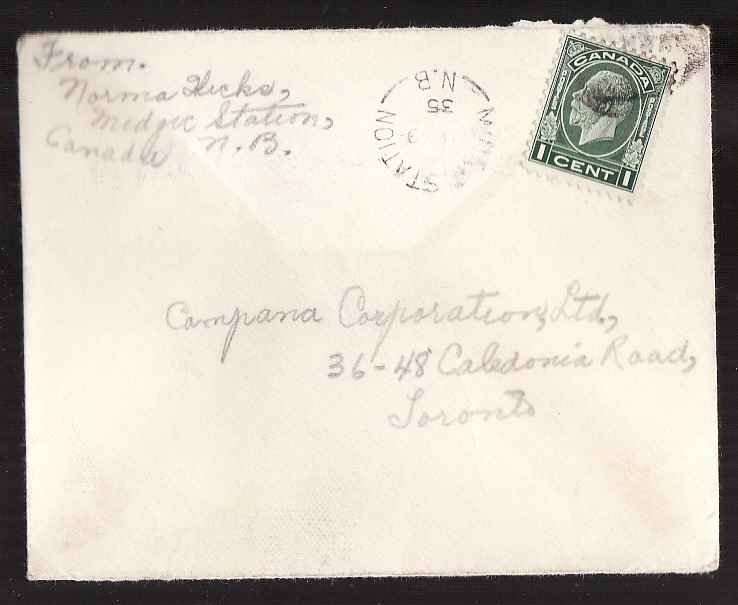 From.
Norma Hicks,
Midgic Station,
Canada N.B.
STATION
N.B
35
CANADA
1 CENT 1
Campana Corporation, Ltd.,
36-48 Caledonia Road,
Toronto